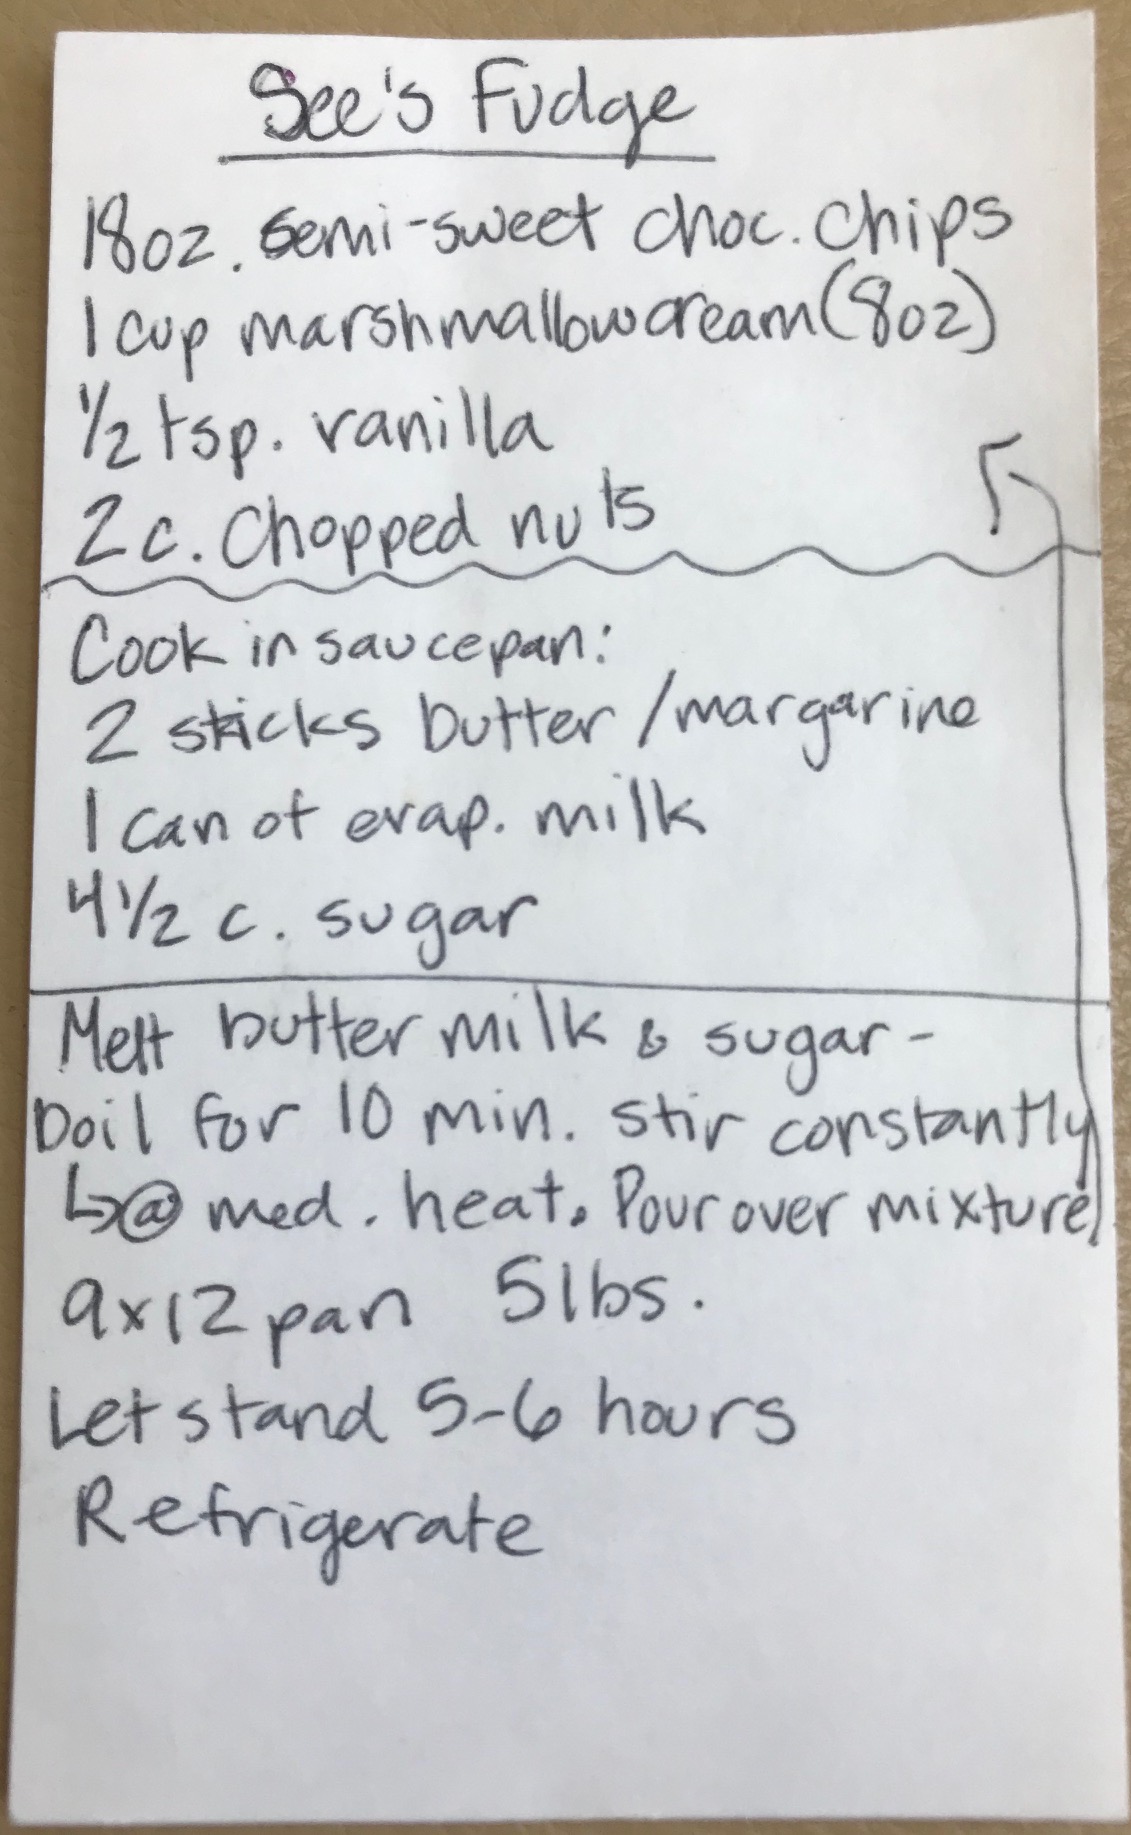 See's Fudge
18oz. semi-sweet choc. chips
1 cup marshmallow cream (8oz)
1/2 tsp. vanilla
2 c. Chopped nuts
Cook in saucepan:
2 sticks butter/margarine
1 can of evap. milk
4 1/2 c. sugar
Melt butter milk & sugar -
boil for 10 min. stir constantly
↳@ med. heat. Pour over mixture
9x12 pan 5lbs.
Let stand 5-6 hours
Refrigerate